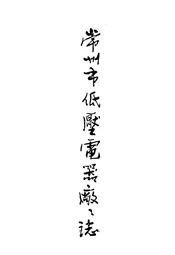 常州市低壓電器廠々誌